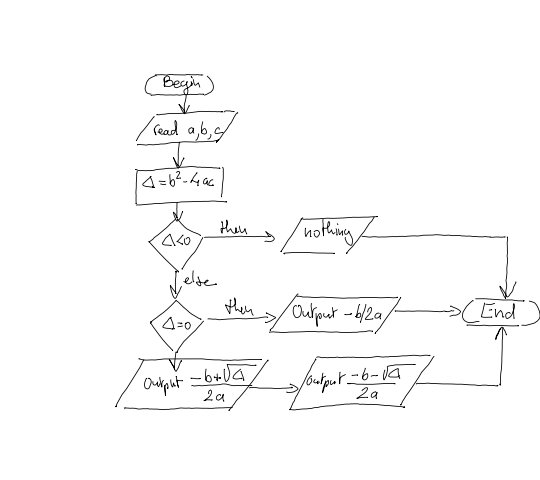 Begin
read a,b,c
Δ=b²-4ac
Δ<0
then
nothing
else
Δ=0
then
Output -b/2a
End
Output (-b+√Δ)/2a
output (-b-√Δ)/2a